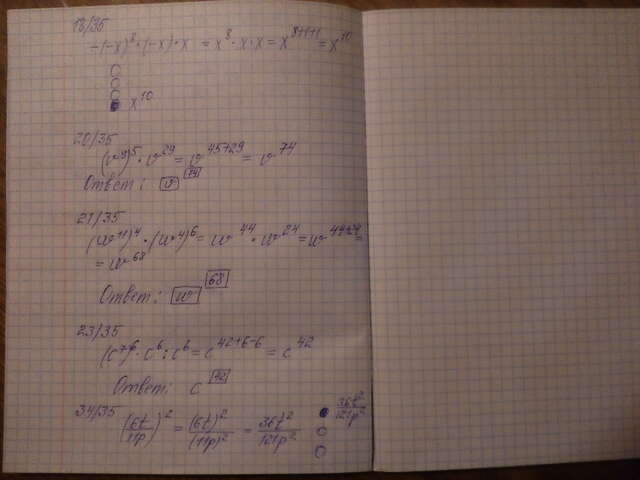 18/35
-(-x)⁸·(-x)·x = x⁸·x·x = x⁸⁺¹⁺¹ = x¹⁰
x¹⁰
20/35
(v⁹)⁵·v²⁹ = v⁴⁵⁺²⁹ = v⁷⁴
Ответ: v⁷⁴
21/35
(w¹¹)⁴·(w⁴)⁶ = w⁴⁴·w²⁴ = w⁴⁴⁺²⁴ =
= w⁶⁸
Ответ: w⁶⁸
23/35
(c⁷)⁶·c⁶:c⁶ = c⁴²⁺⁶⁻⁶ = c⁴²
Ответ: c⁴²
34/35
(6t/11p)² = (6t)²/(11p)² = 36t²/121p² 36t²/121p²